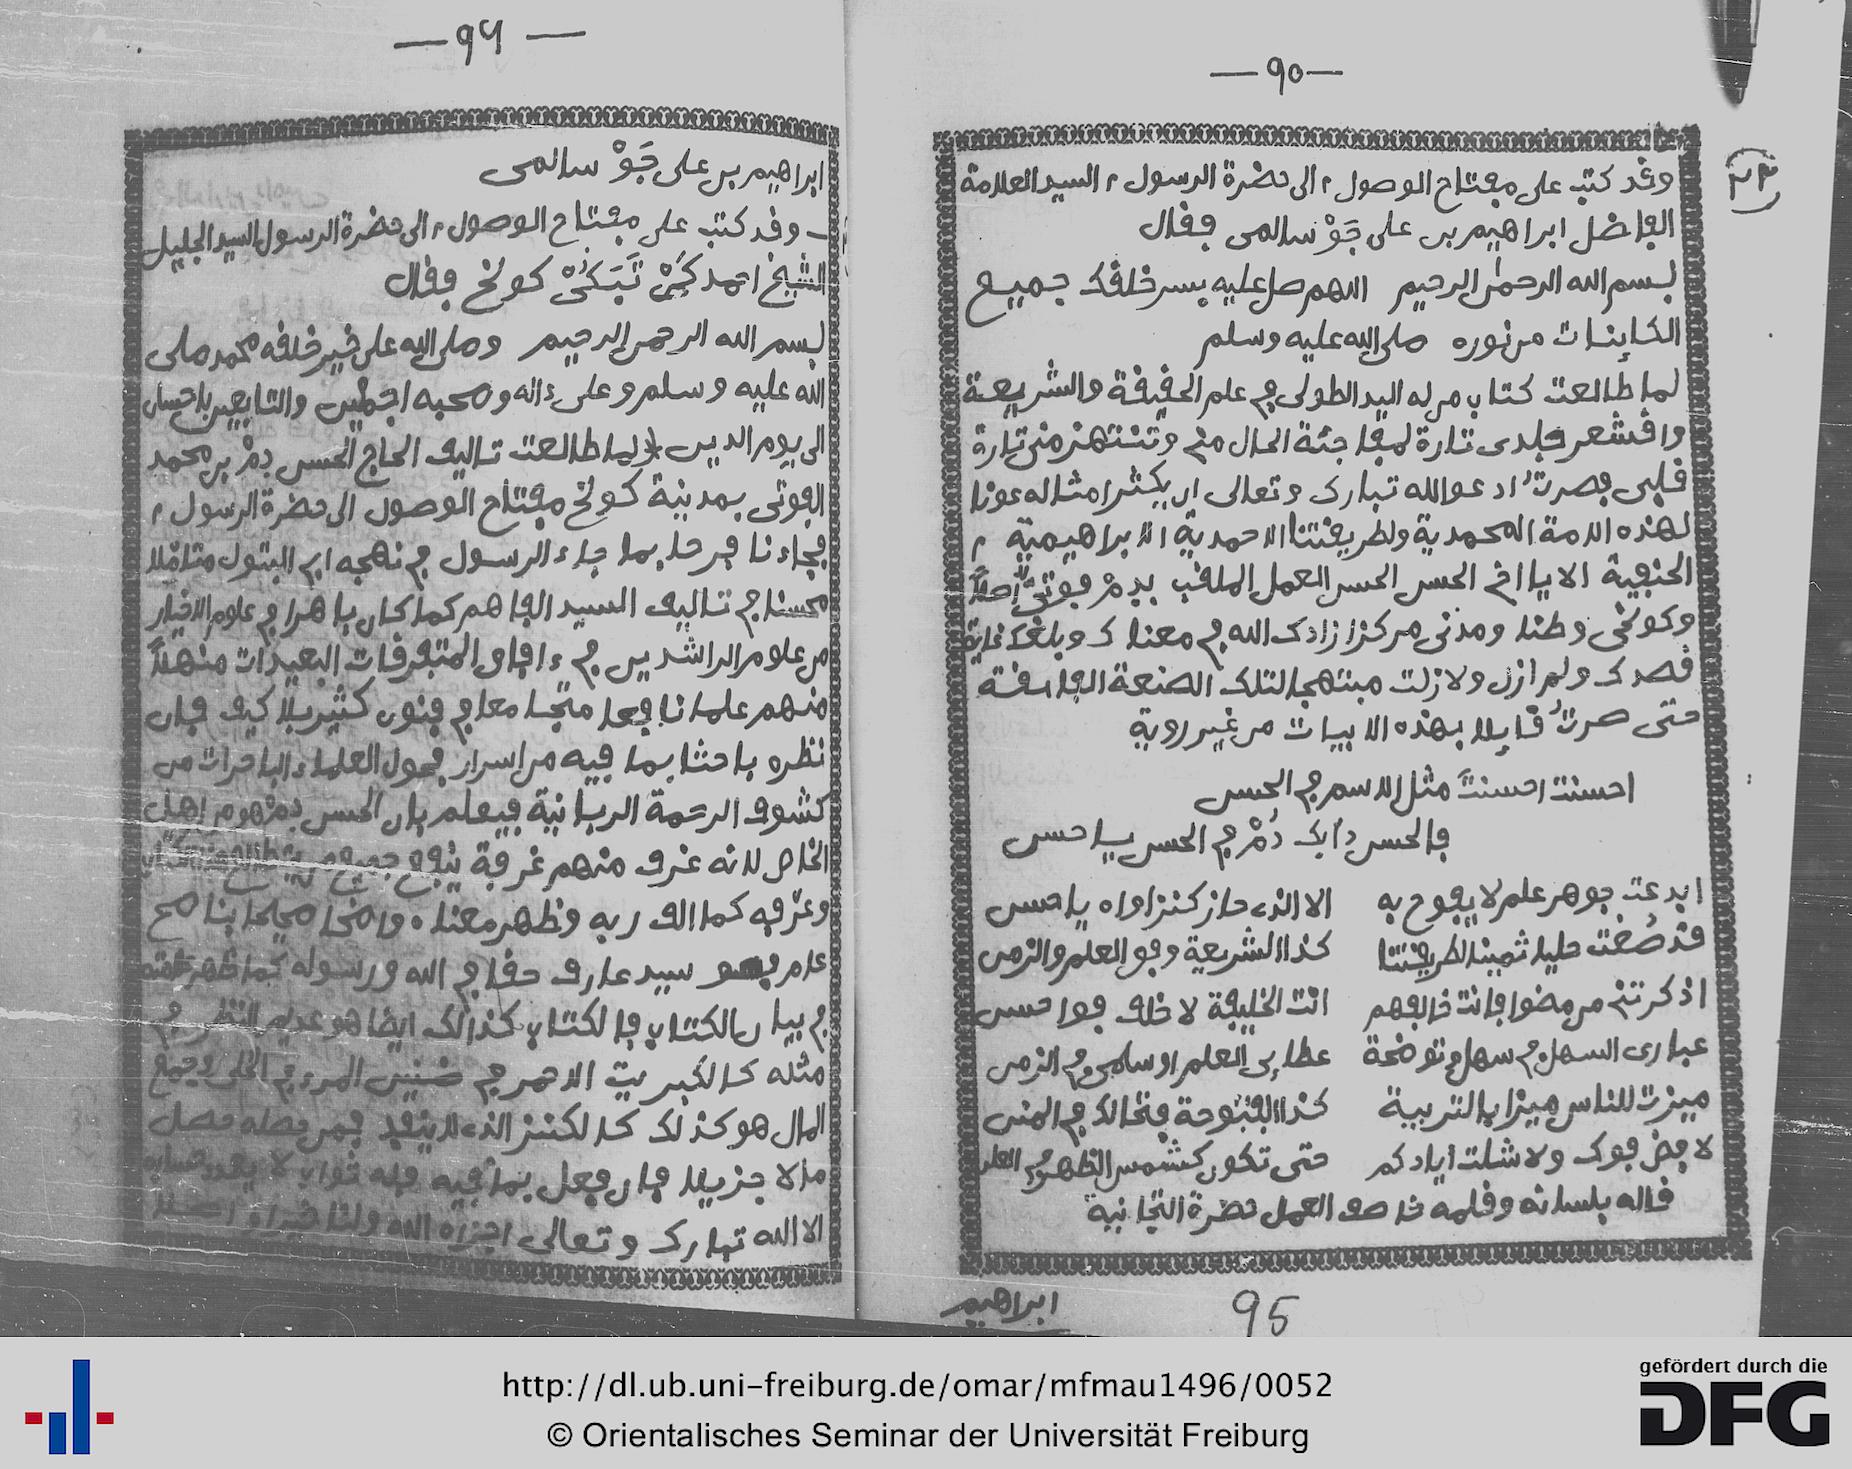 — ٩٥ —
٢٣
وقد كتب على مفتاح الوصول ، الى حضرة الرسول ، السيد العلامة
الفاضل ابراهيم بن على جَوْ سالمى فقال
بسم الله الرحمن الرحيم اللهم صل عليه يسر خلقك جميع
الكاينات من نوره صلى الله عليه وسلم
لما طالعت كتاب من له اليد الطولى فى علم الحقيقة والشريعة
واقشعر جلدى تارة لمفاجئة الحال منى وتنتهز منى تارة
قلبى فصرت ادعو الله تبارك وتعالى ان يكثر امثاله عونا
لهذه الامة المحمدية ولطريقتنا الاحمدية الابراهيمية ،
الحنفية الا يا اخ الحسن الحسن العمل الملقب بدمْ فوتى اصلاً
وكولخى وطنا ومدنى مركزا زادك الله فى معناك وبلغك غاية
قصدك ولم ازل ولا زلت مبتهجا لتلك الصنعة الفاسقة
حتى صرتُ قايلا بهذه الابيات من غير روية
احسنت احسنتَ مثل الاسم فى الحسن
فالحسن دأبك دُمْ فى الحسن يا حسن
ابدعت جوهر علم لا يفوح به الا الذى حاز كنزا واه يا حسن
قد صُغت حليا ثمينا لطريقتنا كذا الشريعة وفو العلم والزمن
اذكرتنى من مضوا فانت خالفهم انت الخليفة لا خلف فوا حسن
عبارى السهل فى سهل وتوضحة عطايى العلم او سلمى فى الزمن
ميزت للناس ميزا بالتربية كذا الفتوحة فتحا لك فى المنن
لا فض فوك ولا شلت اياديكم حتى تكون كشمس الظهر فى العلن
قاله بلسانه وقلمه خاصف العمل حضرة التجانية
ابراهيم
95
— ٩٦ —
ابراهيم بن على جَوْ سالمى
وقد كتب على مفتاح الوصول ، الى حضرة الرسول السيد الجليل
الشيخ احمد كولخ فقال
بسم الله الرحمن الرحيم وصلى الله على خير خلقه محمد صلى
الله عليه وسلم وعلى ءاله وصحبه اجمعين والتابعين باحسان
الى يوم الدين لما طالعت تاليف الحاج الحسن دمْ بن محمد
الفوتى بمدينة كولخ مفتاح الوصول الى حضرة الرسول ،
فجاءنا فرحا بما جاء الرسول فى نهجه ابن البتول متاملا
محسنا فى تاليف السيد الفاهم كما كان باهرا فى علوم الاخيار
من علوم الراشدين فى ءافاق المتفرقات البعيدات منهلاً
منهم علما نافعا متجا معا فى فنون كثير بلا كيف فان
نظره باحثا بما فيه من اسرار فحول العلماء الباخرات من
كشوف الرحمة الربانية فيعلم بان الحسن دمْ هو من اهل
الخاص لانه غرف منهم غرفة ينفع جميع من يطالع هذا الكتاب
وعرفه كما الف ربه وظهر معناه واضحا صحيحا بنا صح
عامر سيد عارف حقا فى الله ورسوله كما ظهر
فى بيان الكتاب فالكتاب كذالك ايضا هو عديم النظر فى
مثله كالكبريت الاحمر فى المرء فى الخلى وجمع
المال هو كذلك كالكنز الذى لا ينفد فمن حصله حصل
مالا جزيلا فان فعل بما فيه فله ثواب لا يعدد حسابه
الا الله تبارك وتعالى اجزاه الله ولنا خيرا
http://dl.ub.uni-freiburg.de/omar/mfmau1496/0052
© Orientalisches Seminar der Universität Freiburg
gefördert durch die
DFG